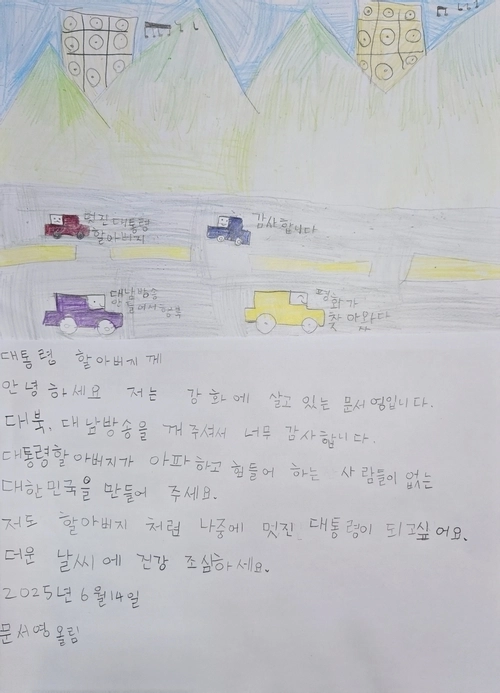 멋진 대통령
할아버지
감사합니다
대남방송
안들어서 행복
평
화가
찾아와다
대통령 할아버지 께
안녕하세요 저는 강화에 살고 있는 문서영입니다.
대북, 대남방송을 꺼주셔서 너무 감사합니다.
대통령할아버지가 아파하고 힘들어 하는 사람들이 없는
대한민국을 만들어 주세요.
저도 할아버지 처럼 나중에 멋진 대통령이 되고싶어요.
더운 날씨에 건강 조심하세요.
2025년 6월 14일
문서영 올림